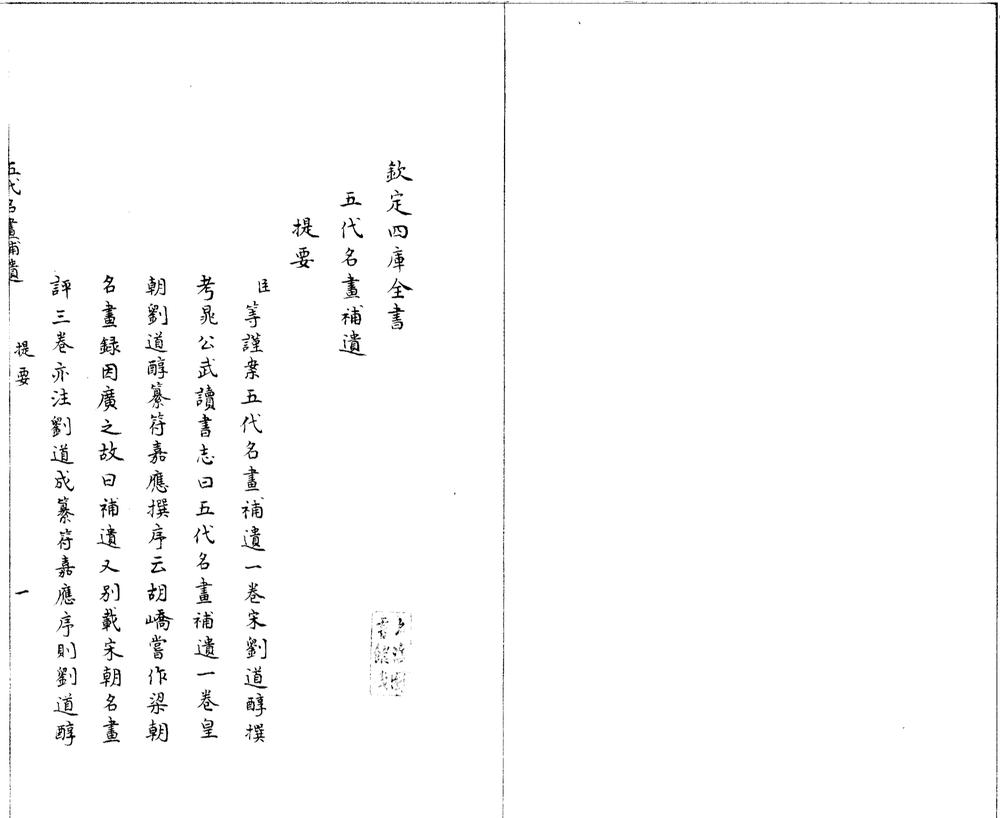 欽定四庫全書
五代名畫補遺
提要
臣等謹案五代名畫補遺一卷宋劉道醇撰
考晁公武讀書志曰五代名畫補遺一卷皇
朝劉道醇纂符嘉應撰序云胡嶠嘗作梁朝
名畫録因廣之故曰補遺又别載宋朝名畫
評三卷亦注劉道成纂符嘉應序則劉道醇
五代名畫補遺 提要 一